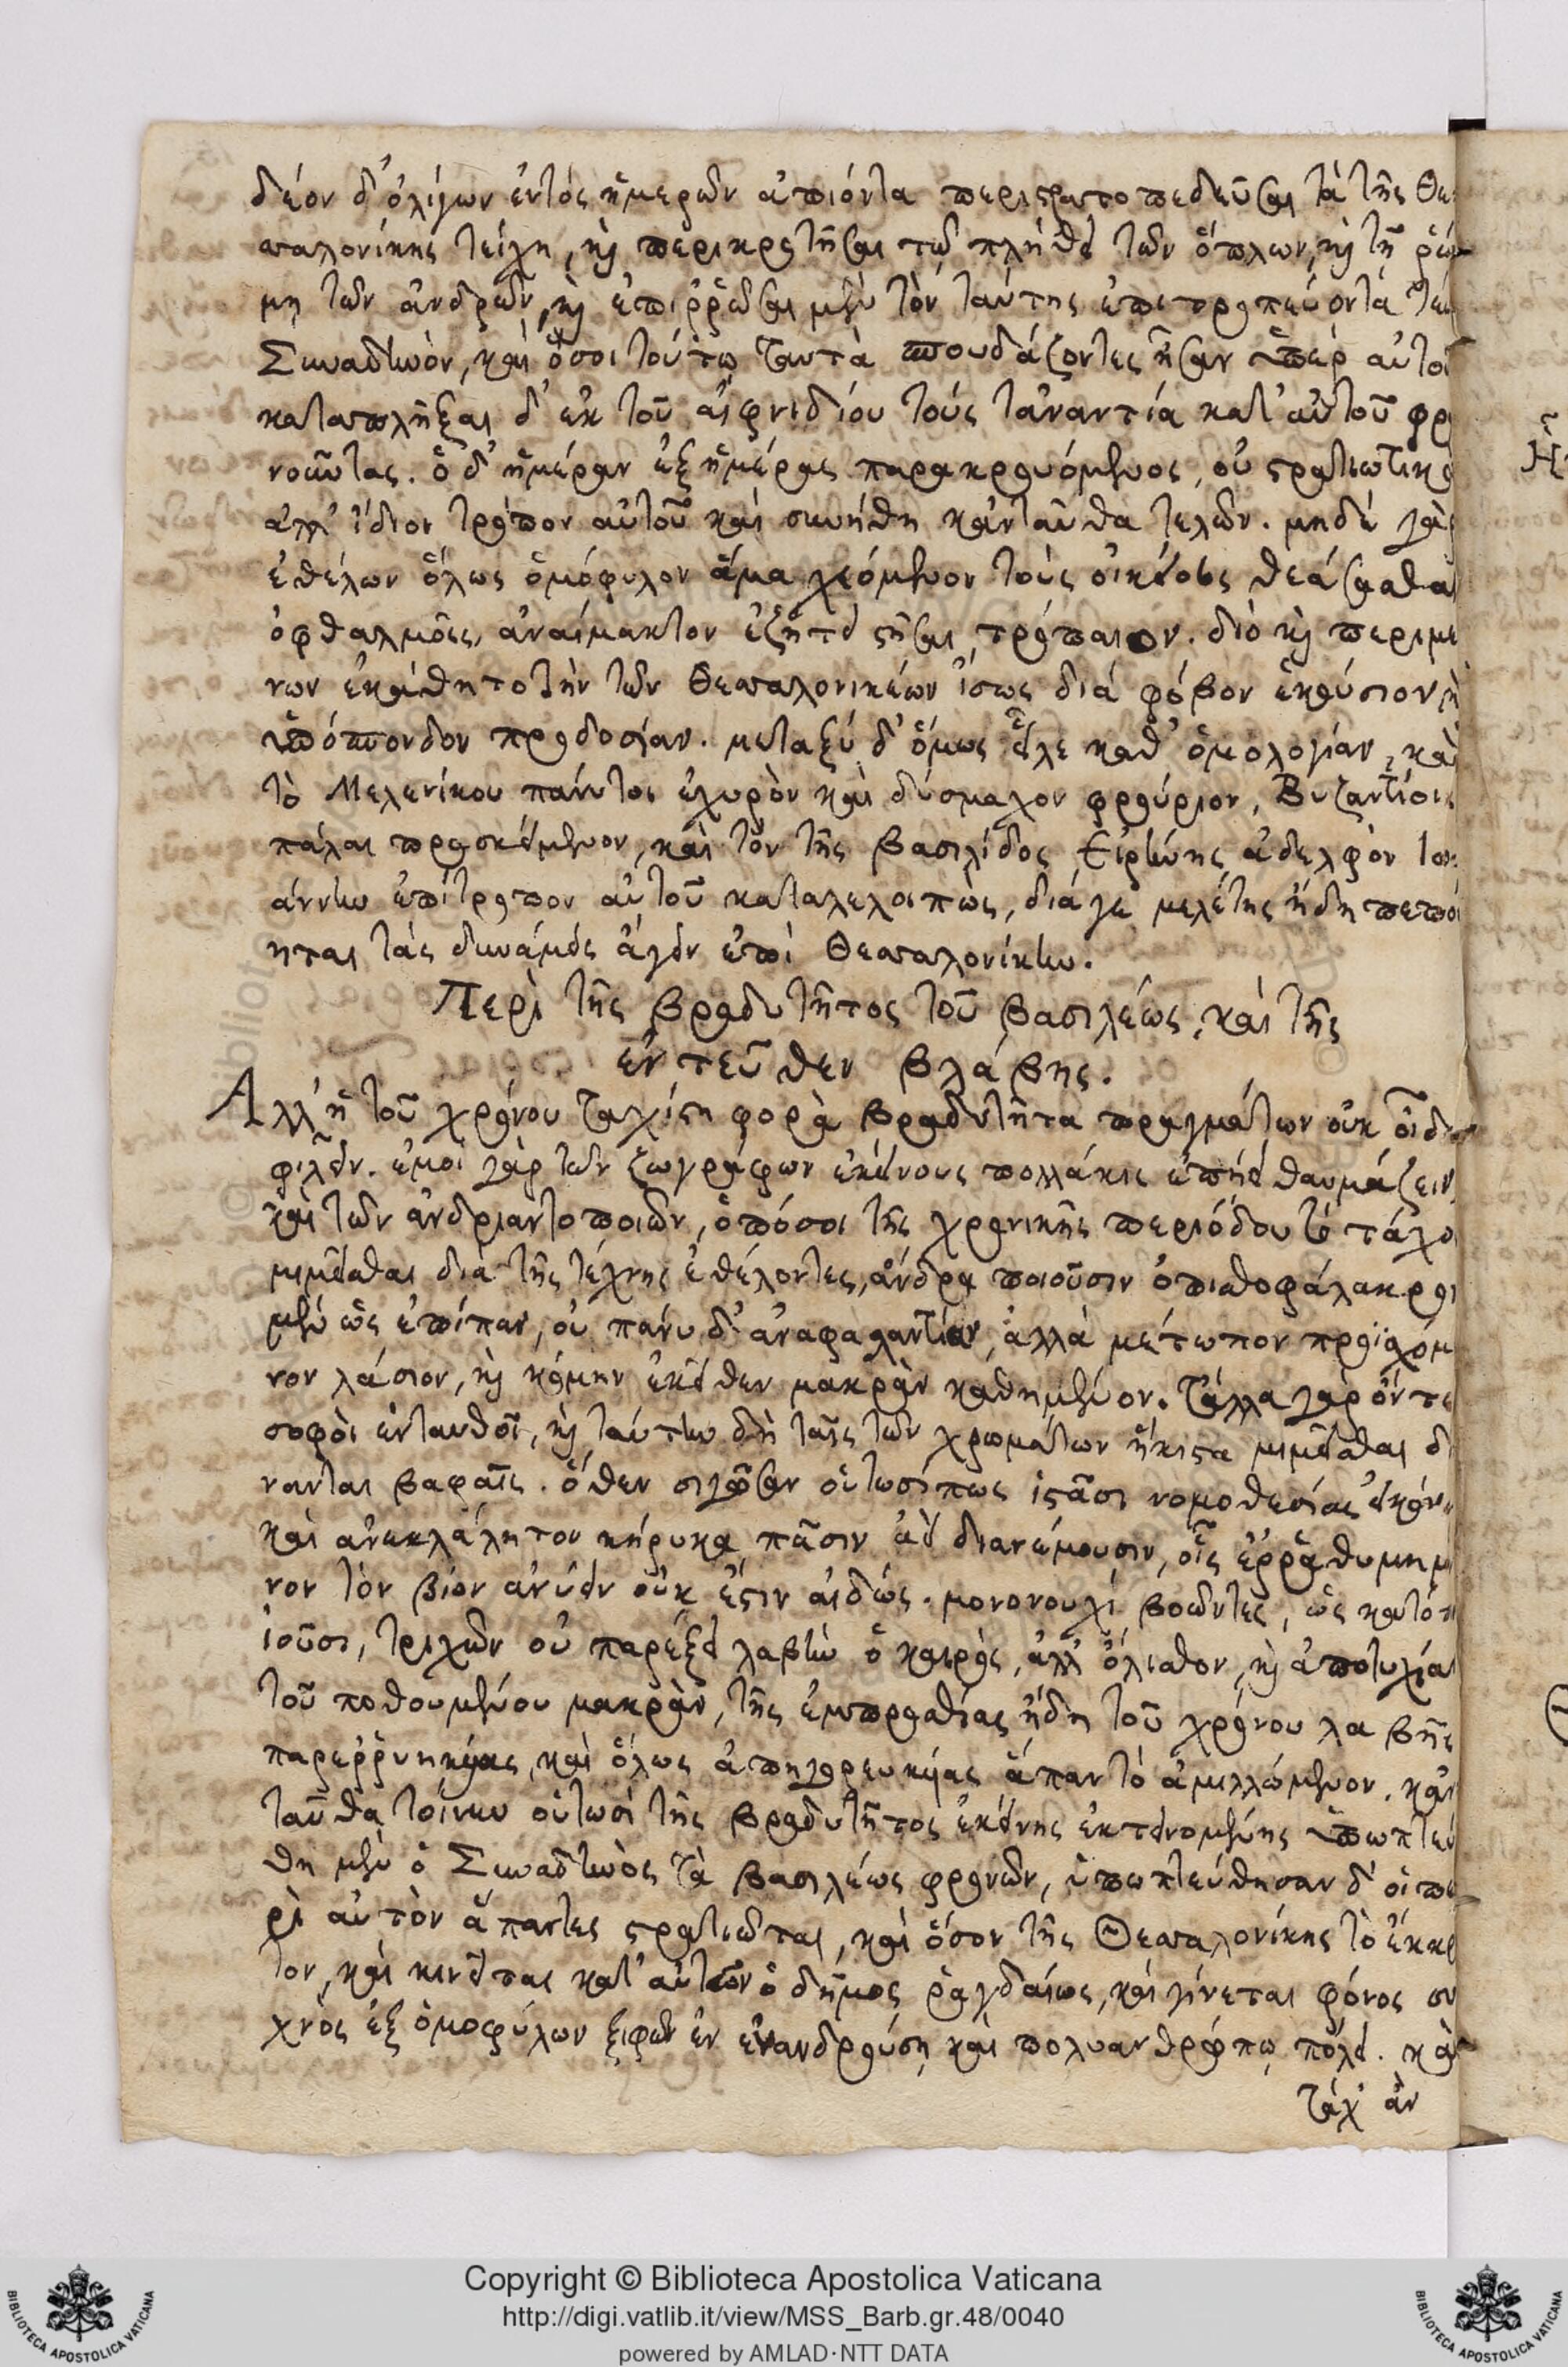 δέον δ' ὀλίγων ἐντὸς ἡμερῶν ἀπιόντα περιστρατοπεδεῦσαι τὰ τῆς Θε
σσαλονίκης τείχη, κỳ περικροτῆσαι τῷ πλήθει τῶν ὅπλων, κỳ τῇ ῥώ
μη τῶν ἀνδρῶν, κỳ ἐπιῤῥῶσαι μὲν τὸν ταύτης ἐπιτροπεύοντα τέως
Συναδινὸν, καὶ ὅσοι τούτῳ ταυτὰ σπουδάζοντες ἦσαν ὑπὲρ αὐτοῦ
καταπλῆξαι δ' ἐκ τοῦ αἰφνιδίου τοὺς τἀναντία κατ' αὐτοῦ φρο
νοῦντας. ὁ δ' ἡμέραν ἐξ ἡμέρας παρακρουόμενος, οὐ στρατιωτικὸ
ἀλλ' ἴδιον τρόπον αὐτοῦ καὶ συνήθη κἀνταῦθα τελῶν. μηδὲ γὰρ
ἐθέλων ὅλως ὁμόφυλον αἷμα χεόμενον τοὺς οἰκείοις θεάσασθαι
ὀφθαλμοῖς, ἀναίμακτον ἐζήτει στῆσαι τρόπαιον. διὸ κỳ περιμέ
νων ἐκάθητο τὴν τῶν Θεσσαλονικέων ἴσως διὰ φόβον ἑκούσιον κỳ
ὑπόσπονδον προδοσίαν. μεταξὺ δ' ὅμως εἷλε καθ' ὁμολογίαν, καὶ
τὸ Μελενίκου πάνυ τοι ἐχυρὸν καὶ δύσμαχον φρούριον, Βυζαντίοις
πάλαι προσκείμενον, καὶ τὸν τῆς βασιλίδος Εἰρήνης ἀδελφὸν Ἰω
άννην ἐπίτροπον αὐτοῦ καταλελοιπὼς, διά γε μελέτης ἤδη πεποί
ηται τὰς δυνάμεις ἄγειν ἐπὶ Θεσσαλονίκην.
Περὶ τῆς βραδυτῆτος τοῦ βασιλέως, καὶ τῆς
ἐντεῦθεν βλάβης.
Ἀλλ' ἡ τοῦ χρόνου ταχίστη φορὰ βραδυτῆτα πραγμάτων οὐκ οἶδε
φιλεῖν. ἐμοὶ γὰρ τῶν ζωγράφων ἐκείνους πολλάκις ἐπῄει θαυμάζειν,
καὶ τῶν ἀνδριαντοποιῶν, ὁπόσοι τῆς χρονικῆς περιόδου τὸ τάχο
μιμεῖσθαι διὰ τῆς τέχνης ἐθέλοντες, ἄνδρα ποιοῦσιν ὀπισθοφάλακρον
μὲν ὡς ἐπίπαν, οὐ πάνυ δ' ἀναφαλαντίαν, ἀλλὰ μέτωπον προϊσχόμε
νον λάσιον, κỳ κόμην ἐκεῖθεν μακρὰν καθημένον. τἄλλα γὰρ ὄντε
σοφοὶ ἐνταυθοῖ, κỳ ταύτην δὴ ταῖς τῶν χρωμάτων ἥκιστα μιμεῖσθαι δύ
νανται βαφαῖς. ὅθεν σιγῶσαν οὑτωσί πως ἱστᾶσι νομοθεσίας εἰκόνα
καὶ ἀνεκλάλητον κήρυκα πᾶσιν ἀεὶ διανέμουσιν, οἷς ἐῤῥᾳθυμημέ
νον τὸν βίον ἀνύειν οὐκ ἔστιν αἰδώς. μονονουχὶ βοῶντες, ὡς κατόπιν
ἰοῦσι, τριχῶν οὐ παρέξει λαβὴν ὁ καιρὸς, ἀλλ' ὄλισθον, κỳ ἀποτυχίαν
τοῦ ποθουμένου μακρὰν, τῆς ἐμπροσθίας ἤδη τοῦ χρόνου λαβῆς
παρεῤῥυηκυίας, καὶ ὅλως ἀπηγορευκυίας ἅπαν τὸ ἁμιλλώμενον. κἀν
ταῦθα τοίνυν οὑτωσὶ τῆς βραδυτῆτος ἐκείνης ἐκτεινομένης ὑπωπτεύ
θη μὲν ὁ Συναδινὸς τὰ βασιλέως φρονῶν, ὑπωπτεύθησαν δ' οἱ πε
ρὶ αὐτὸν ἅπαντες στρατιῶται, καὶ ὅσον τῆς Θεσσαλονίκης τὸ ἔκκρι
τον, καὶ κινεῖται κατ' αὐτῶν ὁ δῆμος ῥαγδαίως, καὶ γίνεται φόνος συ
χνὸς ἐξ ὁμοφύλων ξιφῶν ἐν εὐανδρούσῃ καὶ πολυανθρώπῳ πόλει. κἂν
τάχ' ἂν
Copyright © Biblioteca Apostolica Vaticana
http://digi.vatlib.it/view/MSS_Barb.gr.48/0040
powered by AMLAD·NTT DATA
BIBLIOTECA APOSTOLICA VATICANA
BIBLIOTECA APOSTOLICA VATICANA